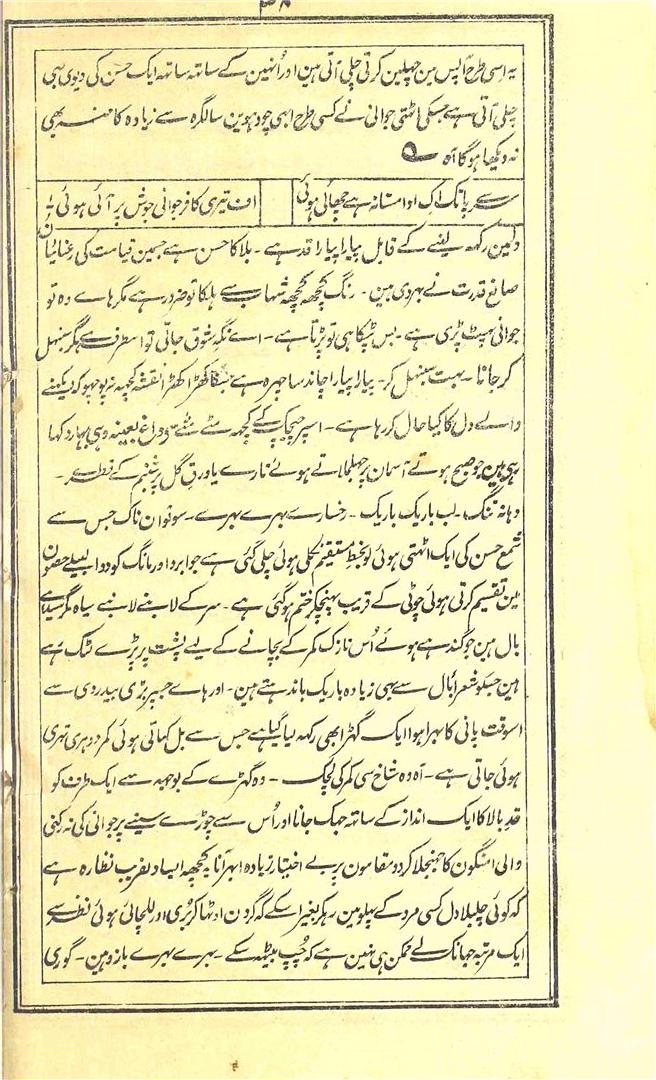 ۳۸
یہ اسی طرح آپس مین چہلین کرتی چلی آتی ہین اور اُنہین کے ساتہہ ساتہہ ایک حسن کی دیوی بھی
چلی آتی ہے جسکی اٹھتی جوانی نے کسی طرح ابھی چودہوین سالگرہ سے زیادہ کا منہ بھی
نہ دیکھا ہوگا آہ ۵
ہے بانک اِک ادا مستانہ ہے چھائی ہوئی
اف تیری کافر جوانی جوش پر آئی ہوئی
دلمین رکھہ لینے کے قابل پیارا پیارا قد ہے ۔ بلا کا حسن ہے جسمین قیامت کی رعنائیان
صانع قدرت نے بھر دی ہین ۔ رنگ کچھہ کچھہ شہاب سے ہلکا تو ضرور ہے مگر ہاے وہ تو
جوانی پھٹ پڑی ہے ۔ بس ٹپکا ہی تو پڑتا ہے ۔ اے نگہِ شوق جاتی تو اسطرف ہے مگر سنبھل
کر جانا ۔ بہت سنبھل کر ۔ پیارا پیارا چاند سا چہرہ ہے جسکا کھڑا کھڑا نقشہ کچھہ نہ پوچھو کہ دیکھنے
والے دل کا کیا حال کر رہا ہے ۔ اسپر چیچک کے کچھہ مٹے مٹے داغ بعینہ وہی بہار دکھا
رہی ہین جو صبح ہوتے آسمان پر جھلملاتے ہوئے تارے یا ورقِ گل پر شبنم کے قطرے ۔
دہانہ تنگ ۔ لب باریک باریک ۔ رخسارے بھرے بھرے ۔ سوتوان ناک جس سے
شمع حسن کی ایک اٹھتی ہوئی لو بخطِ مستقیم نکلی ہوئی چلی گئی ہے جو ابرو اور مانگ کو دو ایسے حصون
مین تقسیم کرتی ہوئی چوٹی کے قریب پہنچکر ختم ہو گئی ہے ۔ سر کے لانبے لانبے سیاہ مگر سیدھے
بال ہین جو گندہے ہوئے اُس نازک کمر کے بچانے کے لیے پشت پر پڑے لٹک رہے
ہین جسکو شعرا بال سے بھی زیادہ باریک باندہتے ہین ۔ اور ہاے جسپر بڑی بیدردی سے
اسوقت پانی کا بھرا ہوا ایک گھڑا بھی رکھہ لیا گیا ہے جس سے بل کھاتی ہوئی کمر دوہری تہری
ہوئی جاتی ہے ۔ آہ وہ شاخ سی کمر کی لچک ۔ وہ گھڑے کے بوجھہ سے ایک طرف کو
قدِ بالا کا ایک انداز کے ساتھہ جھک جانا اور اُس سے چوڑے سینے پر جوانی کی نہ رکنی
والی امنگون کا جھنجلا کر دو مقامون پر بے اختیار زیادہ ابھر آنا یہ کچھہ ایسا دلفریب نظارہ ہے
کہ کوئی چلبلا دل کسی مرد کے پہلو مین رہکر بغیر اسکے کہ گردن اٹھا کر بُری اور للچائی ہوئی نظر سے
ایک مرتبہ جھانک لے ممکن ہی نہین ہے کہ چُپ بیٹھہ سکے ۔ بھرے بھرے بازو ہین ۔ گوری